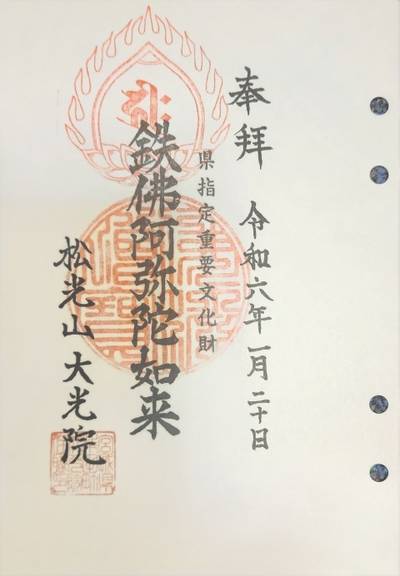 奉拝 令和六年一月二十日
県指定重要文化財
鉄佛阿弥陀如来
松光山 大光院